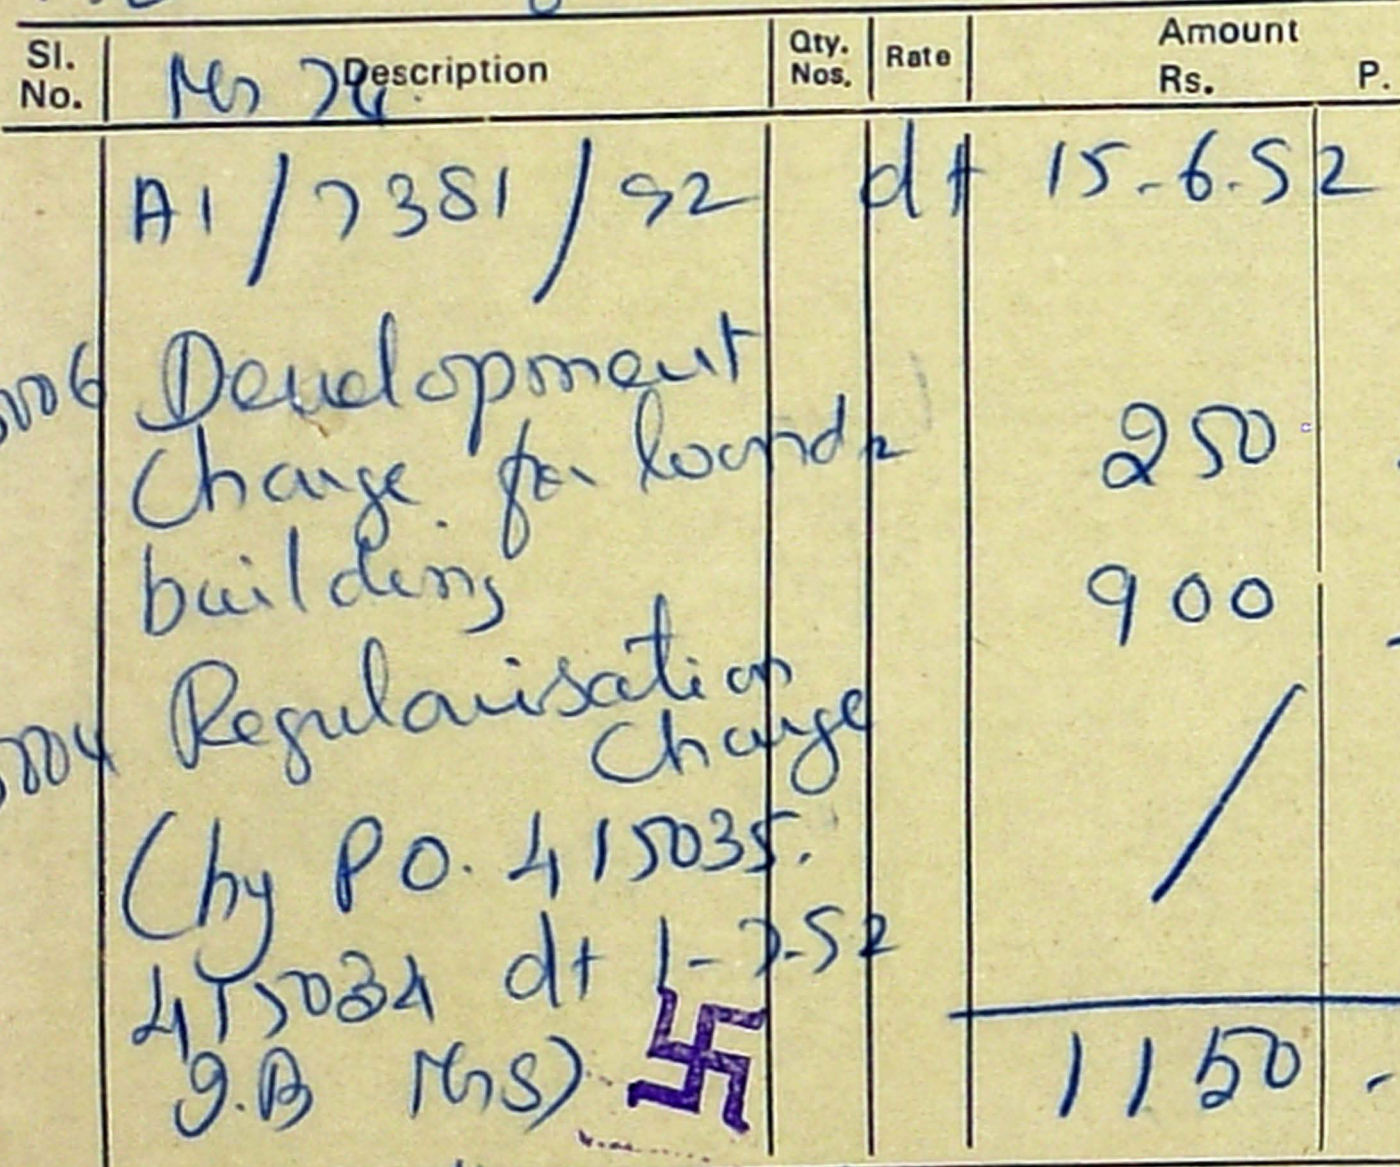 Sl. No. Description Qty. Nos. Rate Amount Rs. P.
A1/7381/92 dt 15.6.92
Development
Charge for land &
building 250
900
Regularisation
Charge
(by PO. 415035.
415034 dt 1-7-92
I.B Ms)
1150 -